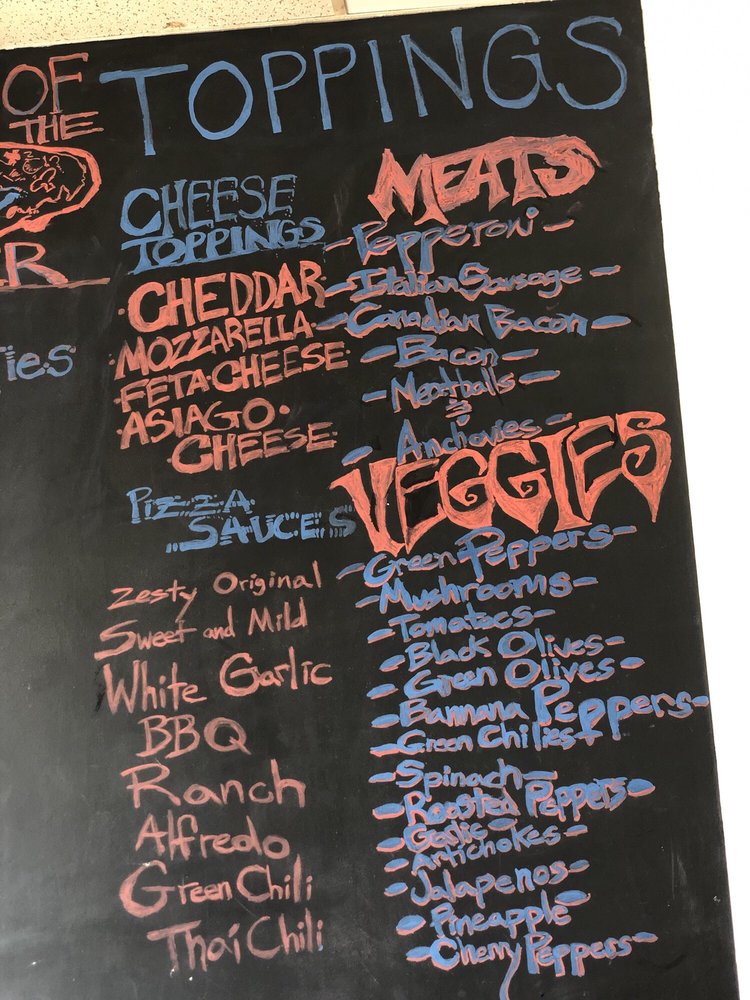 OF
THE
R
ies
TOPPINGS
CHEESE
TOPPINGS
CHEDDAR
MOZZARELLA
FETA CHEESE
ASIAGO
CHEESE
PIZZA
SAUCES
Zesty Original
Sweet and Mild
White Garlic
BBQ
Ranch
Alfredo
Green Chili
Thai Chili
MEATS
- Pepperoni -
- Italian Sausage -
- Canadian Bacon -
- Bacon -
- Meatballs -
&
- Anchovies -
VEGGIES
- Green Peppers -
- Mushrooms -
- Tomatoes -
- Black Olives -
- Green Olives -
- Bannana Peppers -
- Green Chilies -
- Spinach -
- Roasted Peppers -
- Garlic -
- Artichokes -
- Jalapenos -
- Pineapple -
- Cherry Peppers -